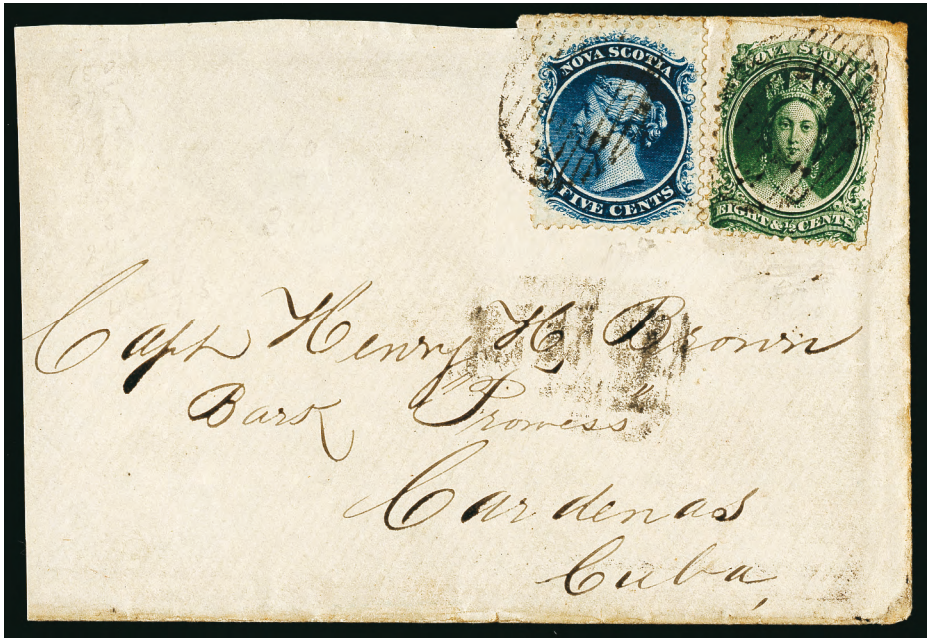 NOVA SCOTIA
FIVE CENTS
NOVA SCOTIA
EIGHT & ½ CENTS
Capt Henry H. Brown
Bark "Prowess"
Cardenas
Cuba,